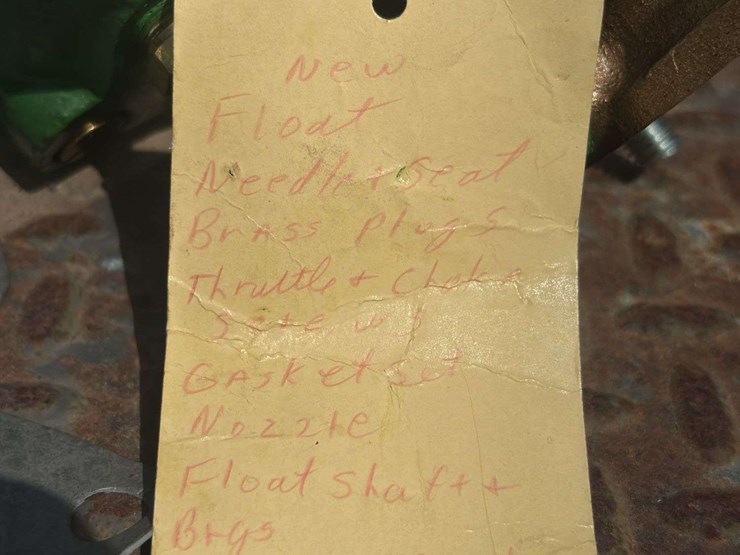 New
Float
Needle + Seat
Brass Plugs
Throttle + Choke
Gasket Set
Nozzle
Float Shaft +
Brgs